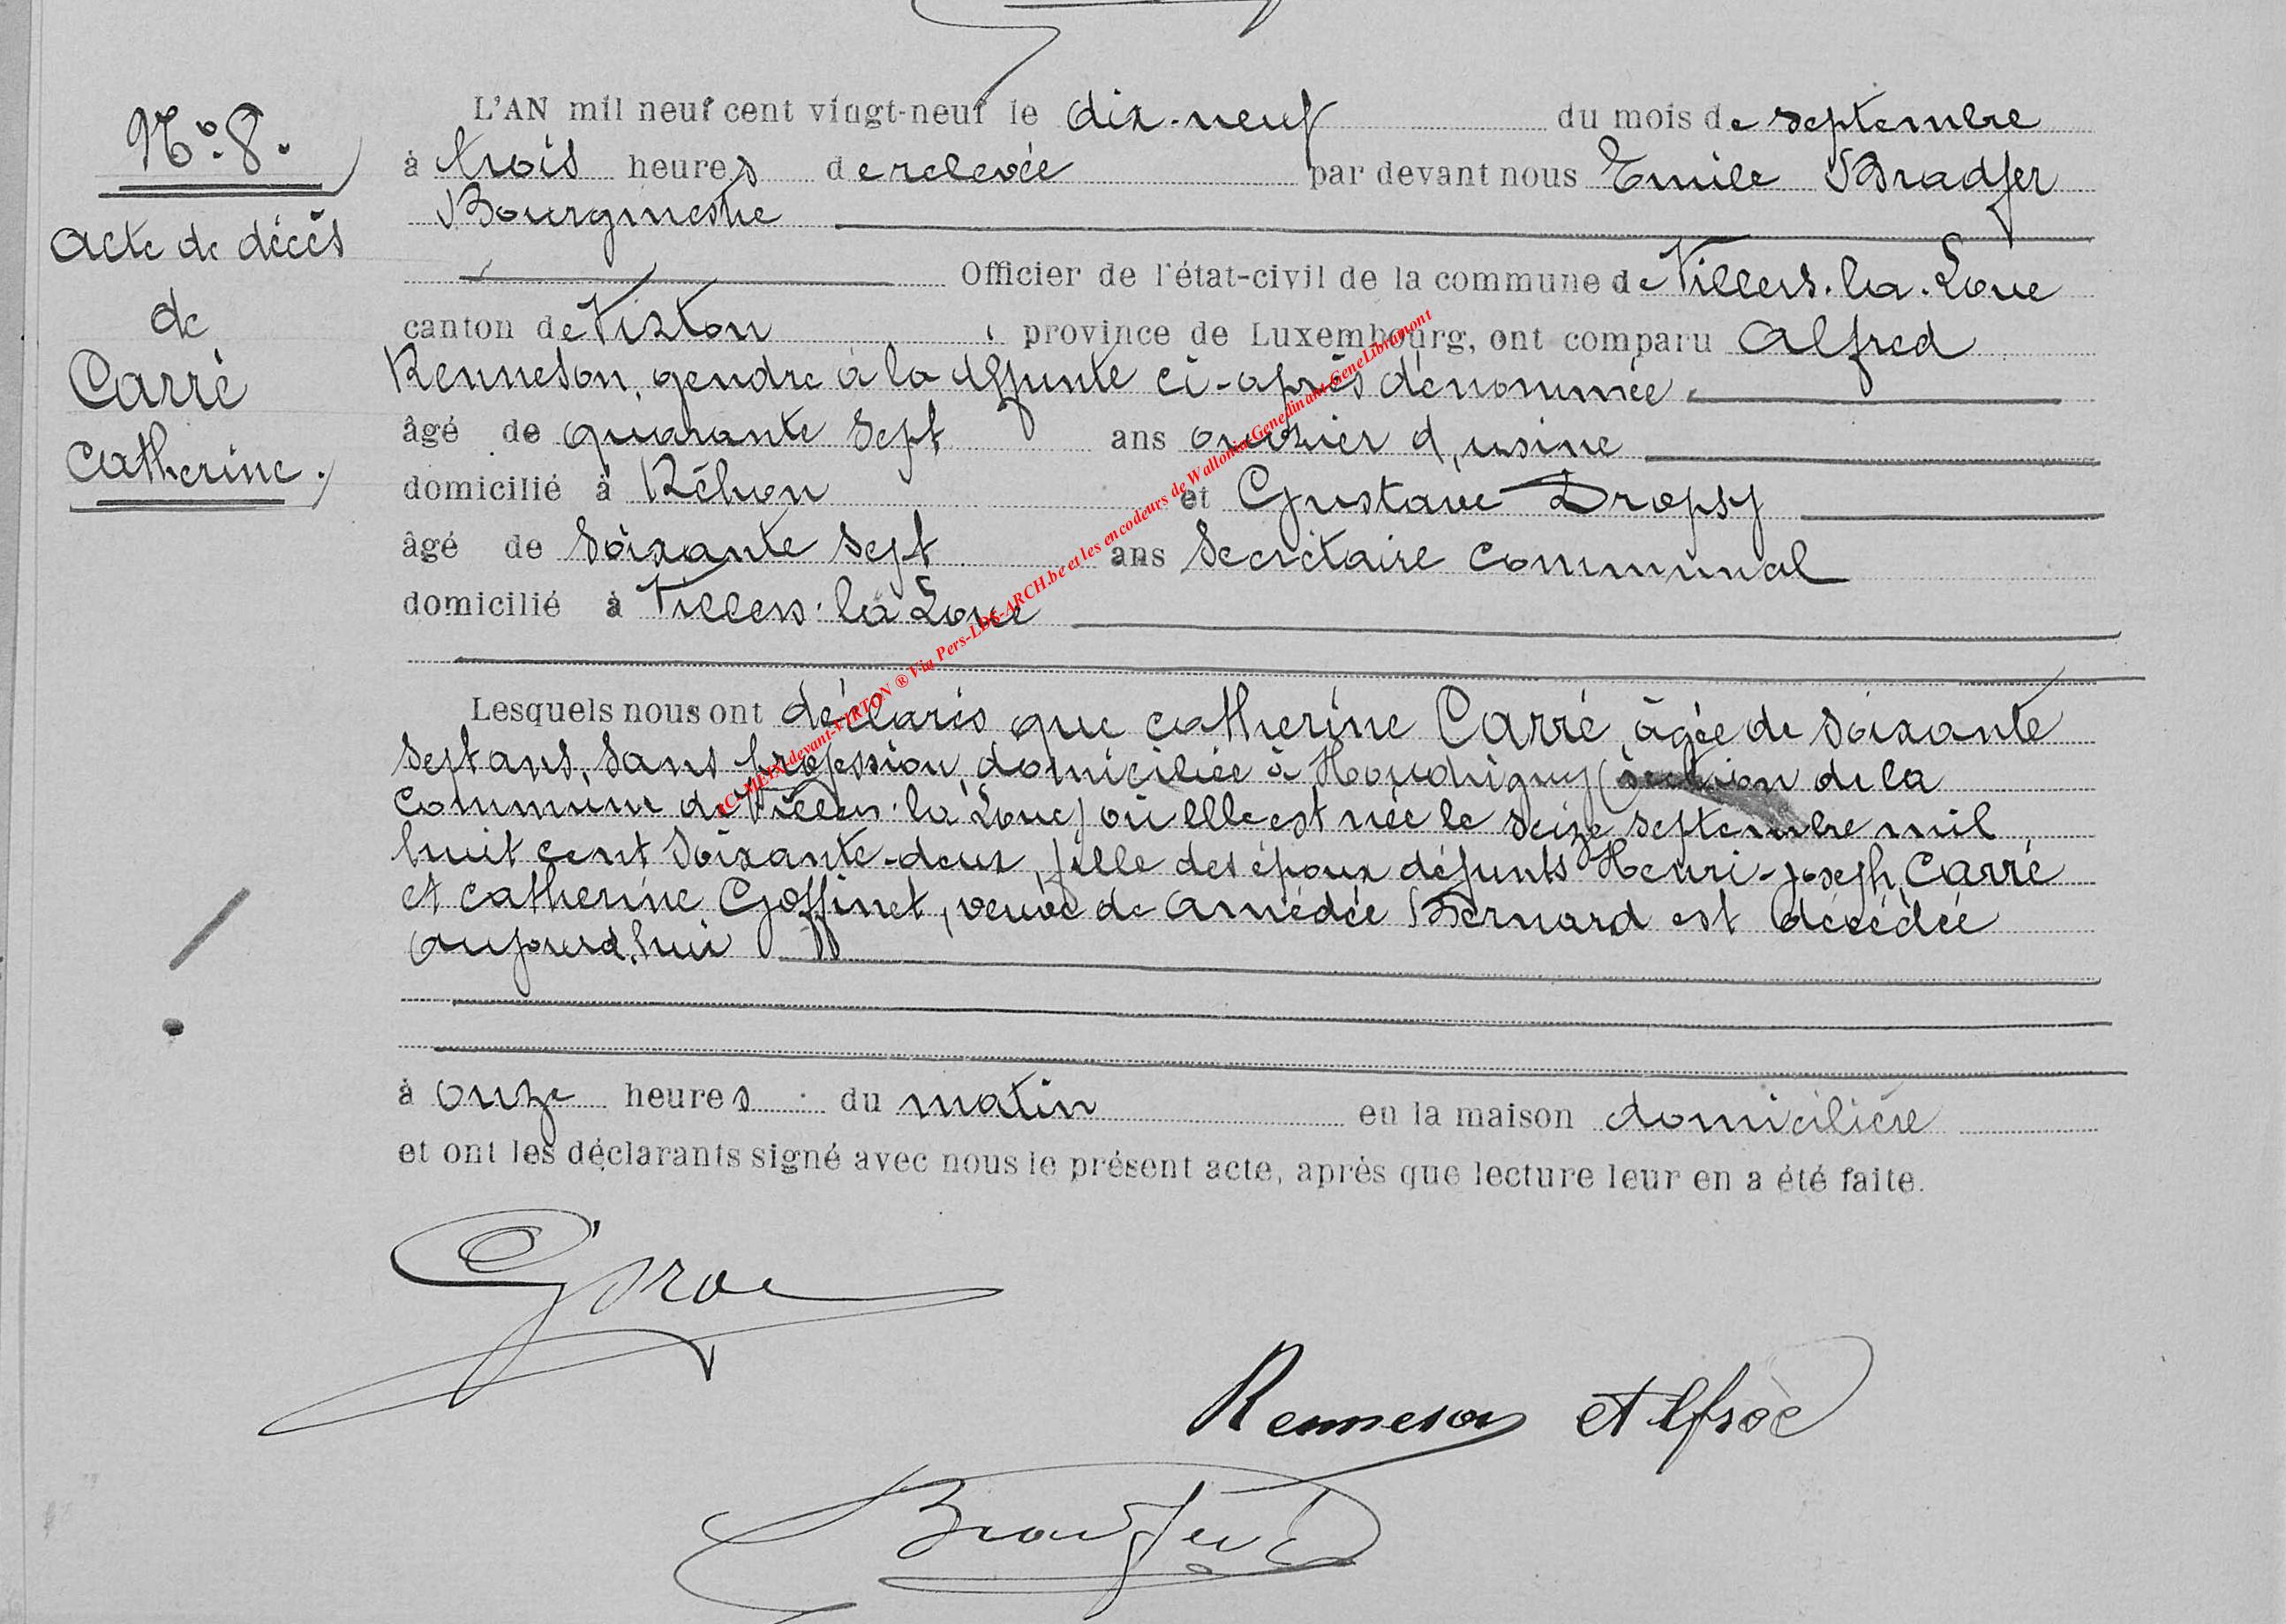 N° 8.
Acte de décès
de
Carré
Catherine.
L'AN mil neuf cent vingt-neuf le dix-neuf du mois de septembre
à trois heures de relevée par devant nous Emile Bradfer
Bourgmestre
Officier de l'état-civil de la commune de Villers-la-Loue
canton de Virton, province de Luxembourg, ont comparu Alfred
Renneson, gendre à la défunte ci-après dénommée.
âgé de quarante sept ans ouvrier d'usine
domicilié à Réhon et Gustave Dropsy
âgé de soixante sept ans secrétaire communal
domicilié à Villers-la-Loue
Lesquels nous ont déclarés que Catherine Carré, âgée de soixante
sept ans, sans profession, domiciliée à Houdrigny (section de la
commune de Villers-la-Loue) où elle est née le seize septembre mil
huit cent soixante-deux, fille des époux défunts Henri-Joseph Carré
et Catherine Goffinet, veuve de Amédée Bernard est décédée
aujourd'hui
à onze heures du matin en la maison domicilière
et ont les déclarants signé avec nous le présent acte, après que lecture leur en a été faite.
Renneson Alfrèd
Bradfer
RC-MEIX-devant-VIRTON ® Via Pers-LDS-ARCH.be et les encodeurs de Wallonia-Genedinant-GeneLibramont